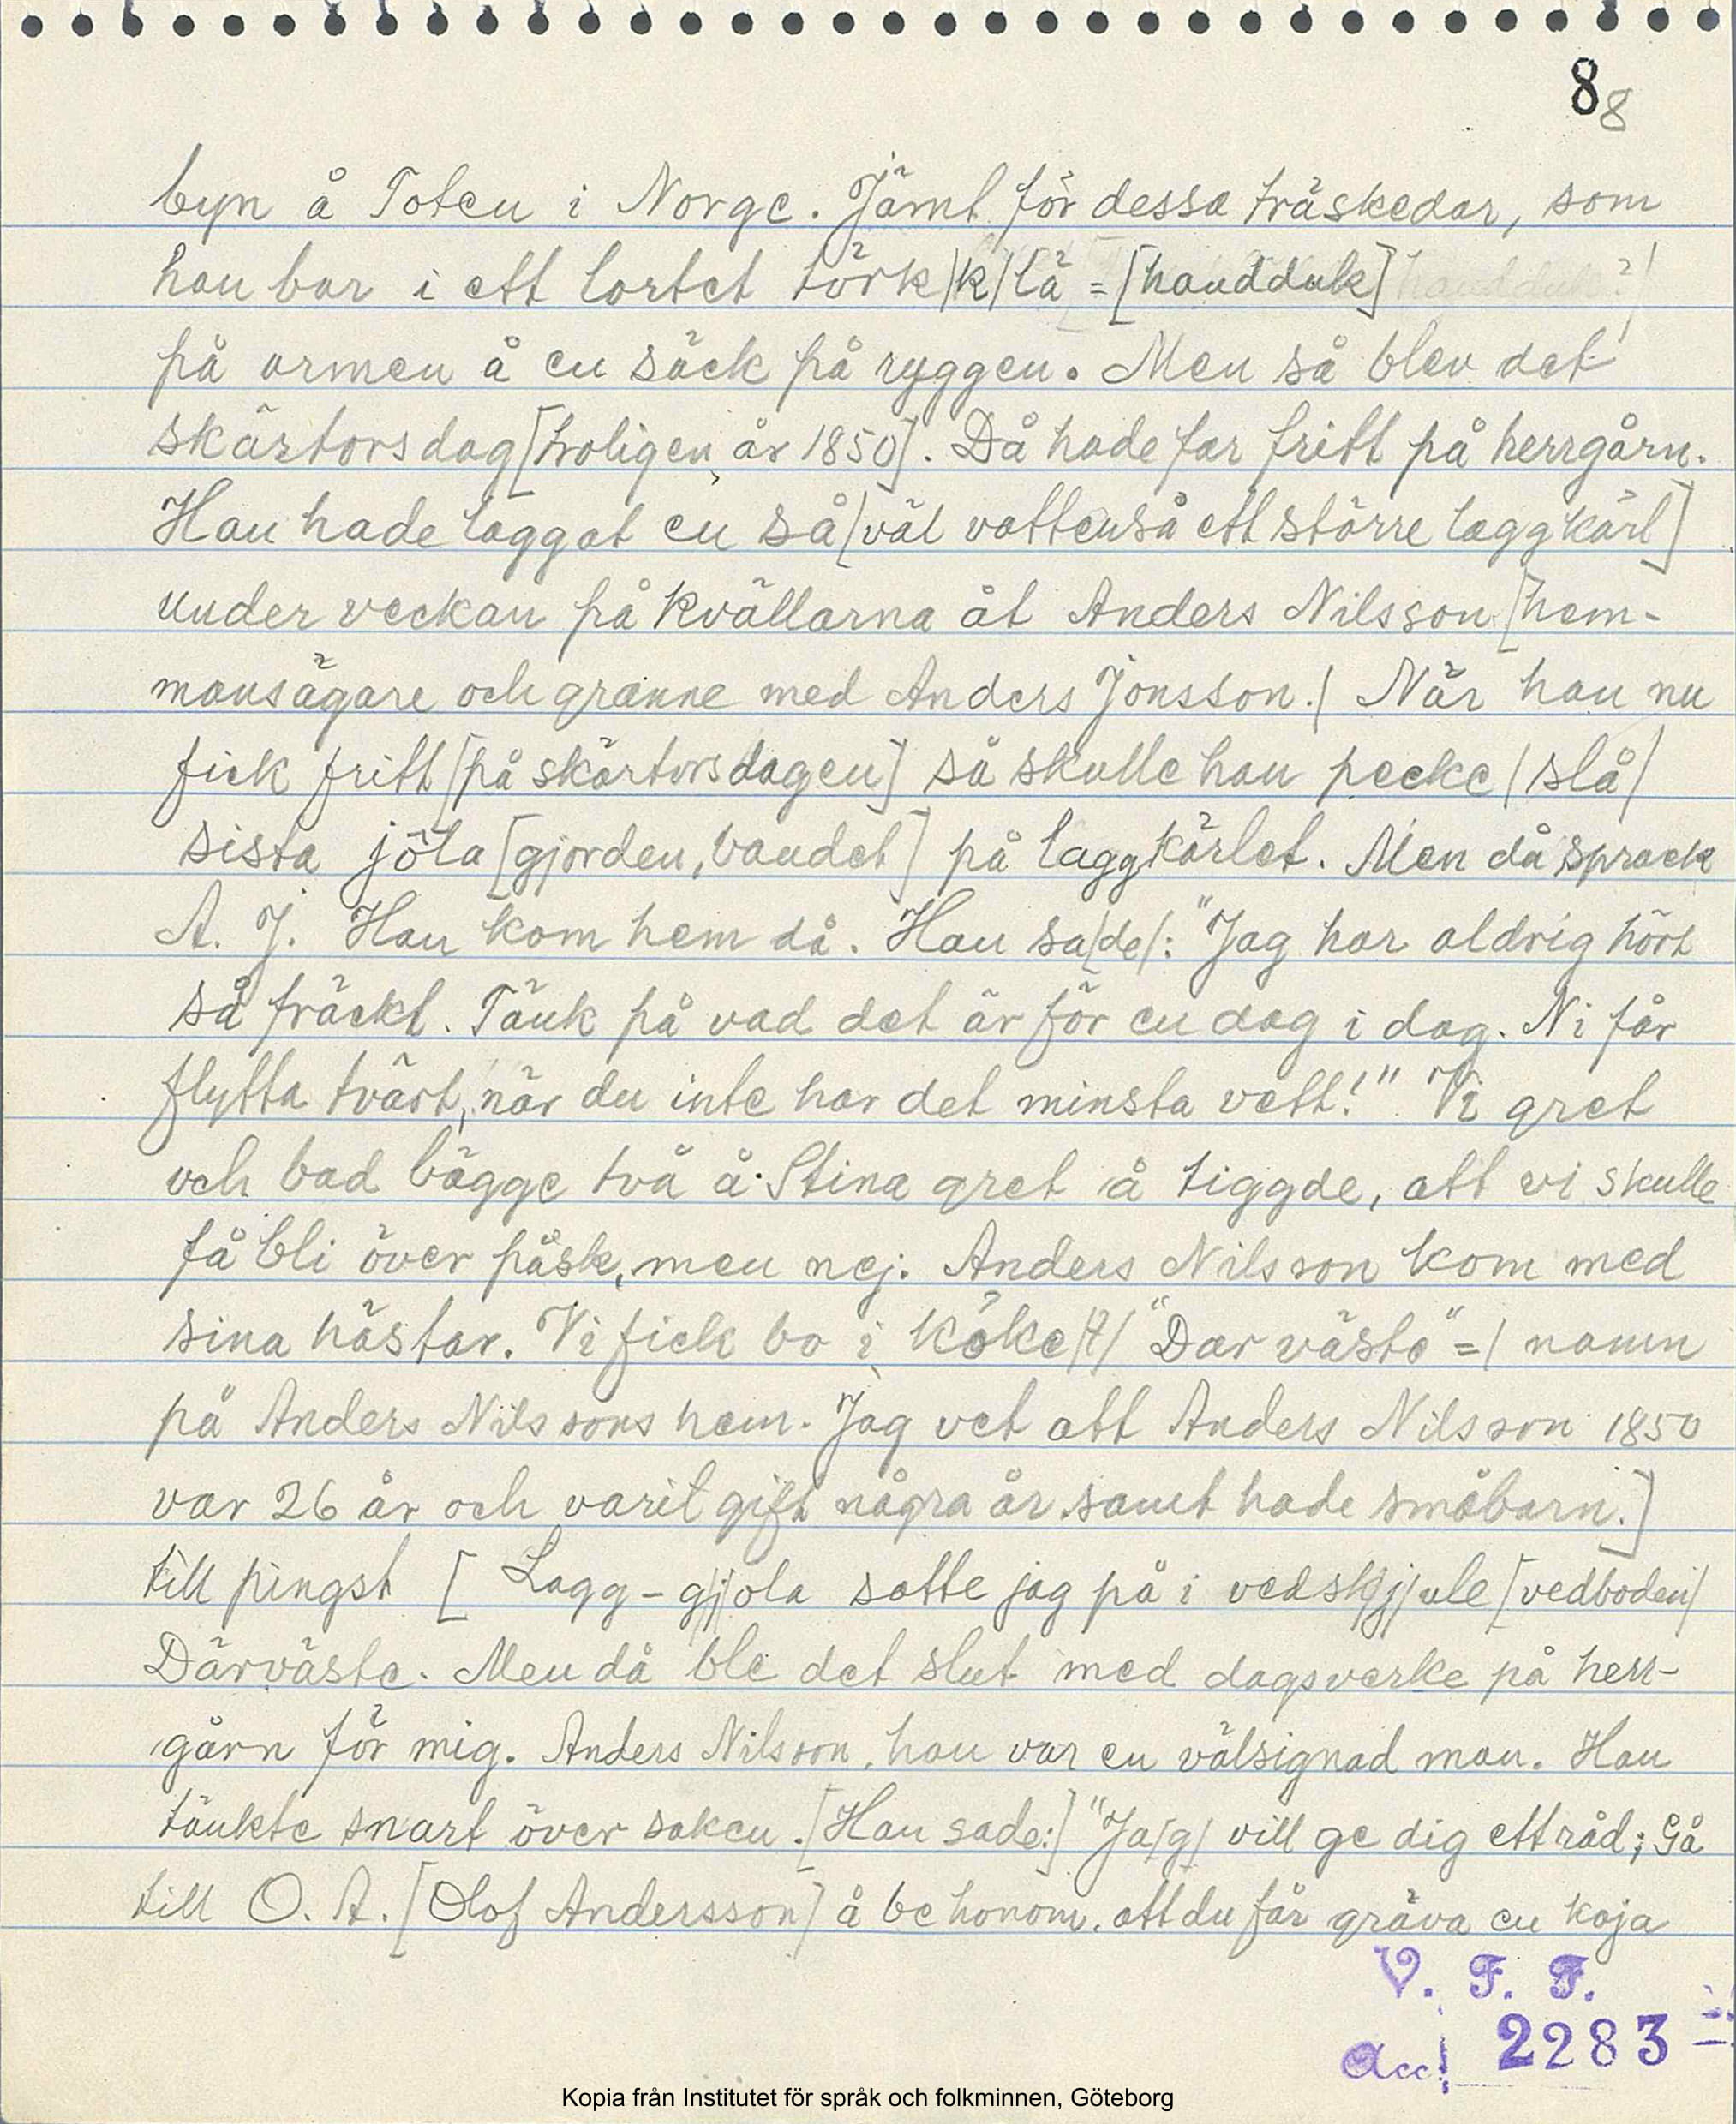 8
8
byn å Toten i Norge. Jämt för dessa träskedar, som
han bar i ett lortet törk/k/lä = [handduk]
på armen å en säck på ryggen. Men så blev det
skärtorsdag [troligen år 1850]. Då hade far fritt på herrgårn.
Han hade laggat en så [väl vattenså ett större laggkärl]
under veckan på kvällarna åt Anders Nilsson [hem-
mansägare och granne med Anders Jonsson./ När han nu
fick fritt [på skärtorsdagen] så skulle han pecke /slå/
sista jöla [gjorden, bandet] på laggkärlet. Men då sprack
A. J. Han kom hem då. Han sa/de/: "Jag har aldrig hört
så fräckt. Tänk på vad det är för en dag i dag. Ni får
flytta tvärt, när du inte har det minsta vett!" Vi gret
och bad bägge två å Stina gret å tiggde, att vi skulle
få bli över påsk, men nej. Anders Nilsson kom med
sina hästar. Vi fick bo i köke/t/ "Där väste" = / namn
på Anders Nilssons hem. Jag vet att Anders Nilsson 1850
var 26 år och varit gift några år samt hade småbarn.]
till pingst [ Lagg-g/j/ola satte jag på i vedsk/j/ule [vedboden/
Därväste. Men då ble det slut med dagsverke på herr-
gårn för mig. Anders Nilsson, han var en välsignad man. Han
tänkte snart över saken. [Han sade:] "Ja/g/ vill ge dig ett råd; Gå
till O. A. [Olof Andersson] å be honom, att du får gräva en koja
V. F. F.
Acc! 2283
Kopia från Institutet för språk och folkminnen, Göteborg